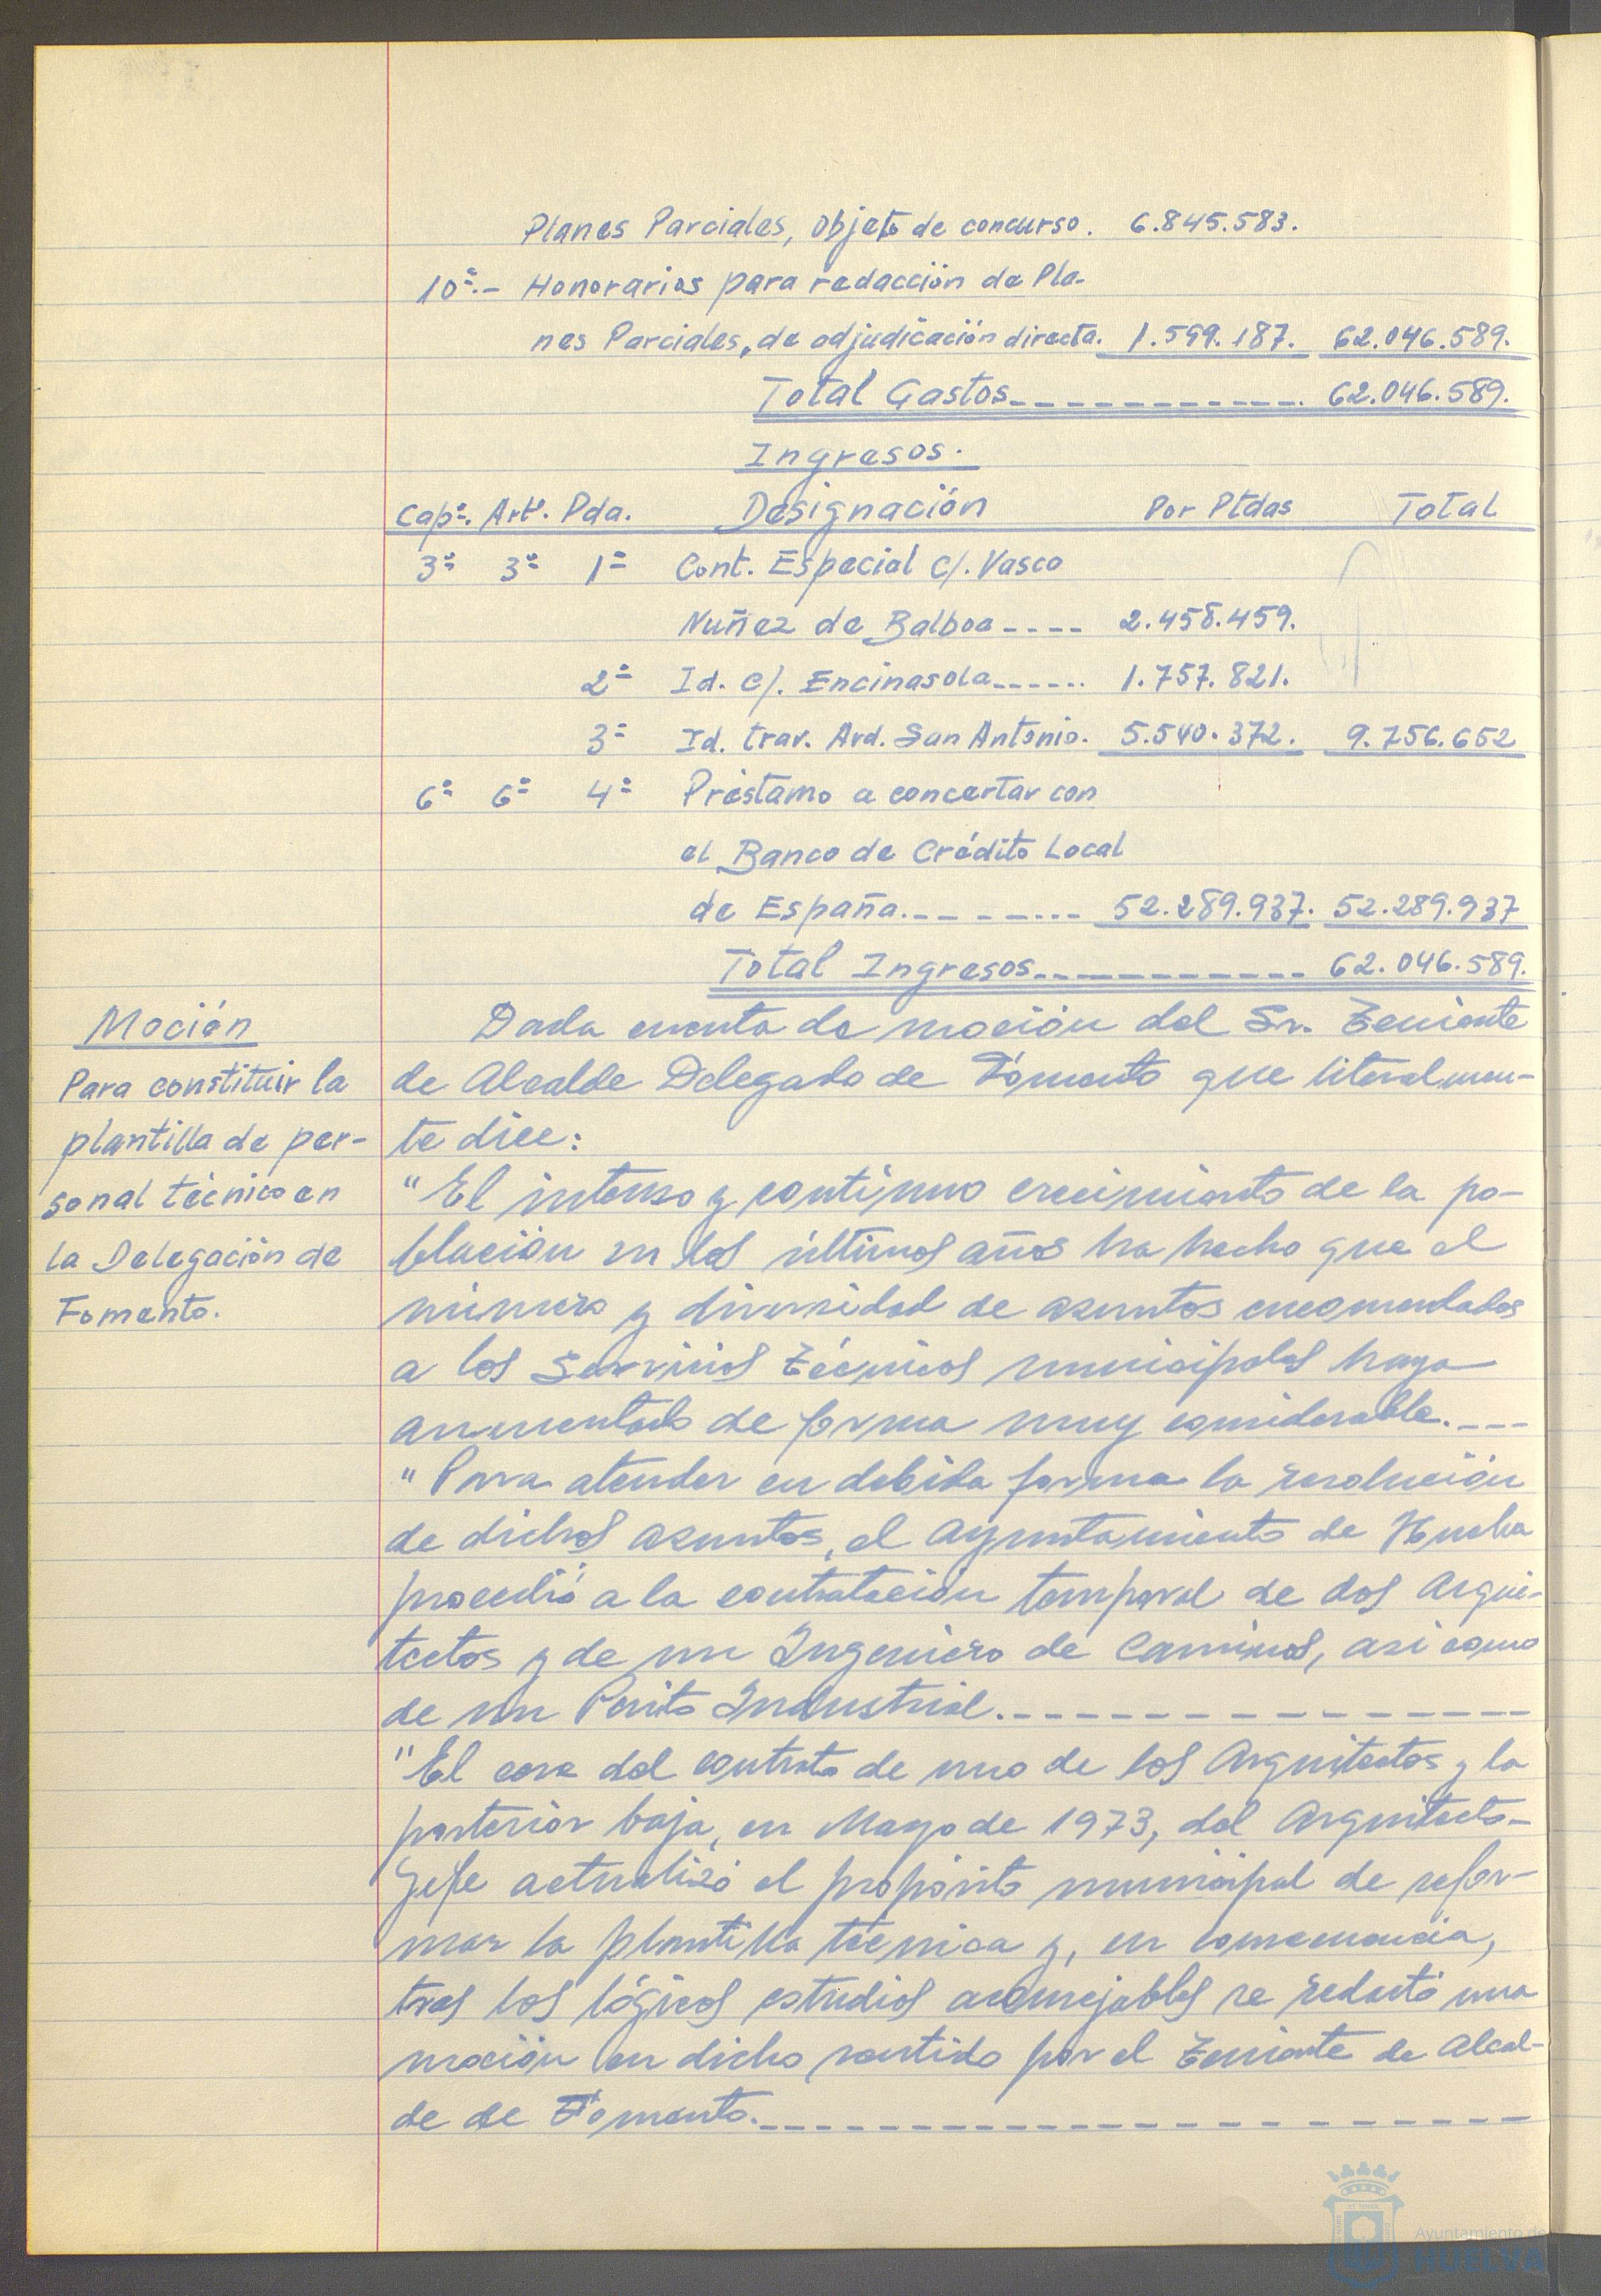 Planes Parciales, objeto de concurso. 6.845.583.
10ª.- Honorarios para redacción de Pla-
nes Parciales, de adjudicación directa. 1.599.187. 62.046.589.
Total Gastos 62.046.589.
Ingresos.
Capº. Artº. Pda. Designación Por Ptdas Total
3º 3º 1ª Cont. Especial c/. Vasco
Nuñez de Balboa ---- 2.458.459.
2ª Id. c/. Encinasola ------ 1.757.821.
3ª Id. trav. Avd. San Antonio. 5.540.372. 9.756.652
6º 6º 4ª Préstamo a concertar con
el Banco de Crédito Local
de España. 52.289.937. 52.289.937
Total Ingresos 62.046.589.
Moción
Para constituir la
plantilla de per-
sonal técnico en
la Delegación de
Fomento.
Dada cuenta de moción del Sr. Teniente
de Alcalde Delegado de Fomento que literalmen-
te dice:
"El intenso y continuo crecimiento de la po-
blación en los últimos años ha hecho que el
número y diversidad de asuntos encomendados
a los Servicios Técnicos municipales haya
aumentado de forma muy considerable.---
"Para atender en debida forma la resolución
de dichos asuntos, el Ayuntamiento de Huelva
procedió a la contratación temporal de dos Arqui-
tectos y de un Ingeniero de Caminos, asi como
de un Perito Industrial.
"El cese del contrato de uno de los Arquitectos y la
posterior baja, en Mayo de 1973, del Arquitecto-
Jefe actualizó el propósito municipal de refor-
mar la plantilla técnica y, en consecuencia,
tras los lógicos estudios aconsejables se redactó una
moción en dicho sentido por el Teniente de Alcal-
de de Fomento.
Ayuntamiento de
HUELVA